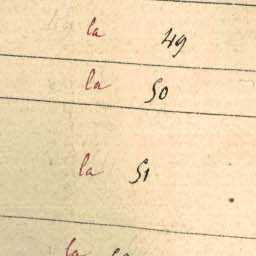 la 49
la 50
la 51
la